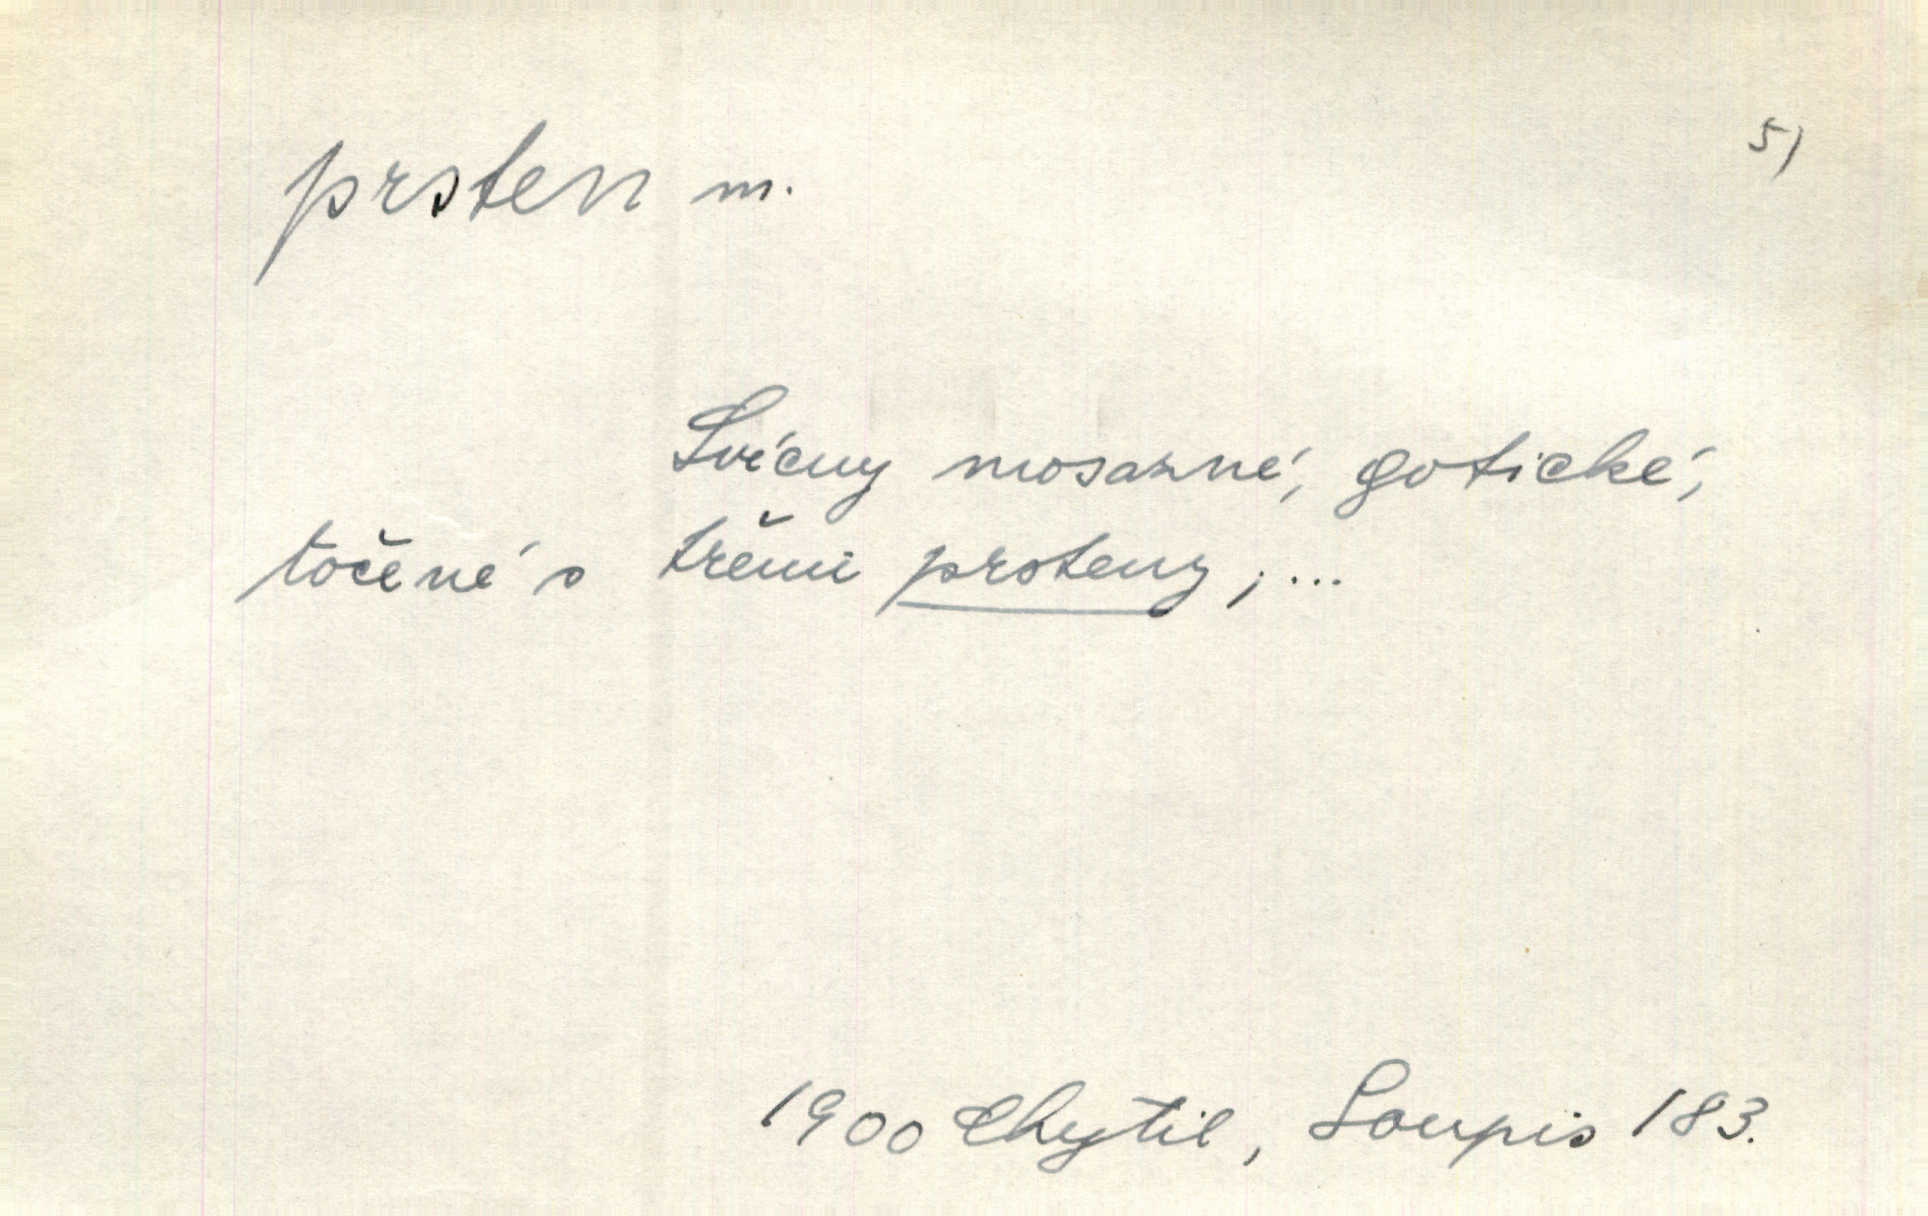 prsten m. 5)
Svícny mosazné, gotické,
točené s třemi prsteny; ...
1900 Chytil, Soupis 183.